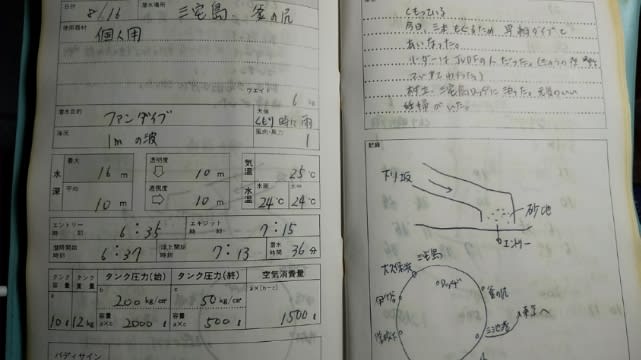 日付
8/16
潜水場所
三宅島 釜の尻
使用器材
個人用
ウエイト
6 kg
潜水目的
ファンダイブ
天候
くもり時々雨
海況
1mの波
風向・風力
1
水深
最大
16 m
平均
10 m
透明度
10 m
透視度
10 m
気温
25℃
水温
水面
24℃
水中
24℃
エントリー時刻
6:35
エキジット時刻
7:15
潜水開始時刻
6:37
浮上開始時刻
7:13
潜水時間
36分
タンク容量
タンク重量
タンク圧力(始)
タンク圧力(終)
空気消費量
a
b
c
a×(b-c)
10ℓ
12kg
200 kg/cm²
50 kg/cm²
1500ℓ
容量
2000ℓ
容量 a×c
500ℓ
バディサイン
くもっている
今日、三本もぐるため、早朝ダイブと
あいなった。
リーダーはJUDFの人だった。
記録
下り坂
砂地
エントリー
三宅島
大久保浜
ロッヂ
釜の尻
伊ヶ谷
三池港
東京へ